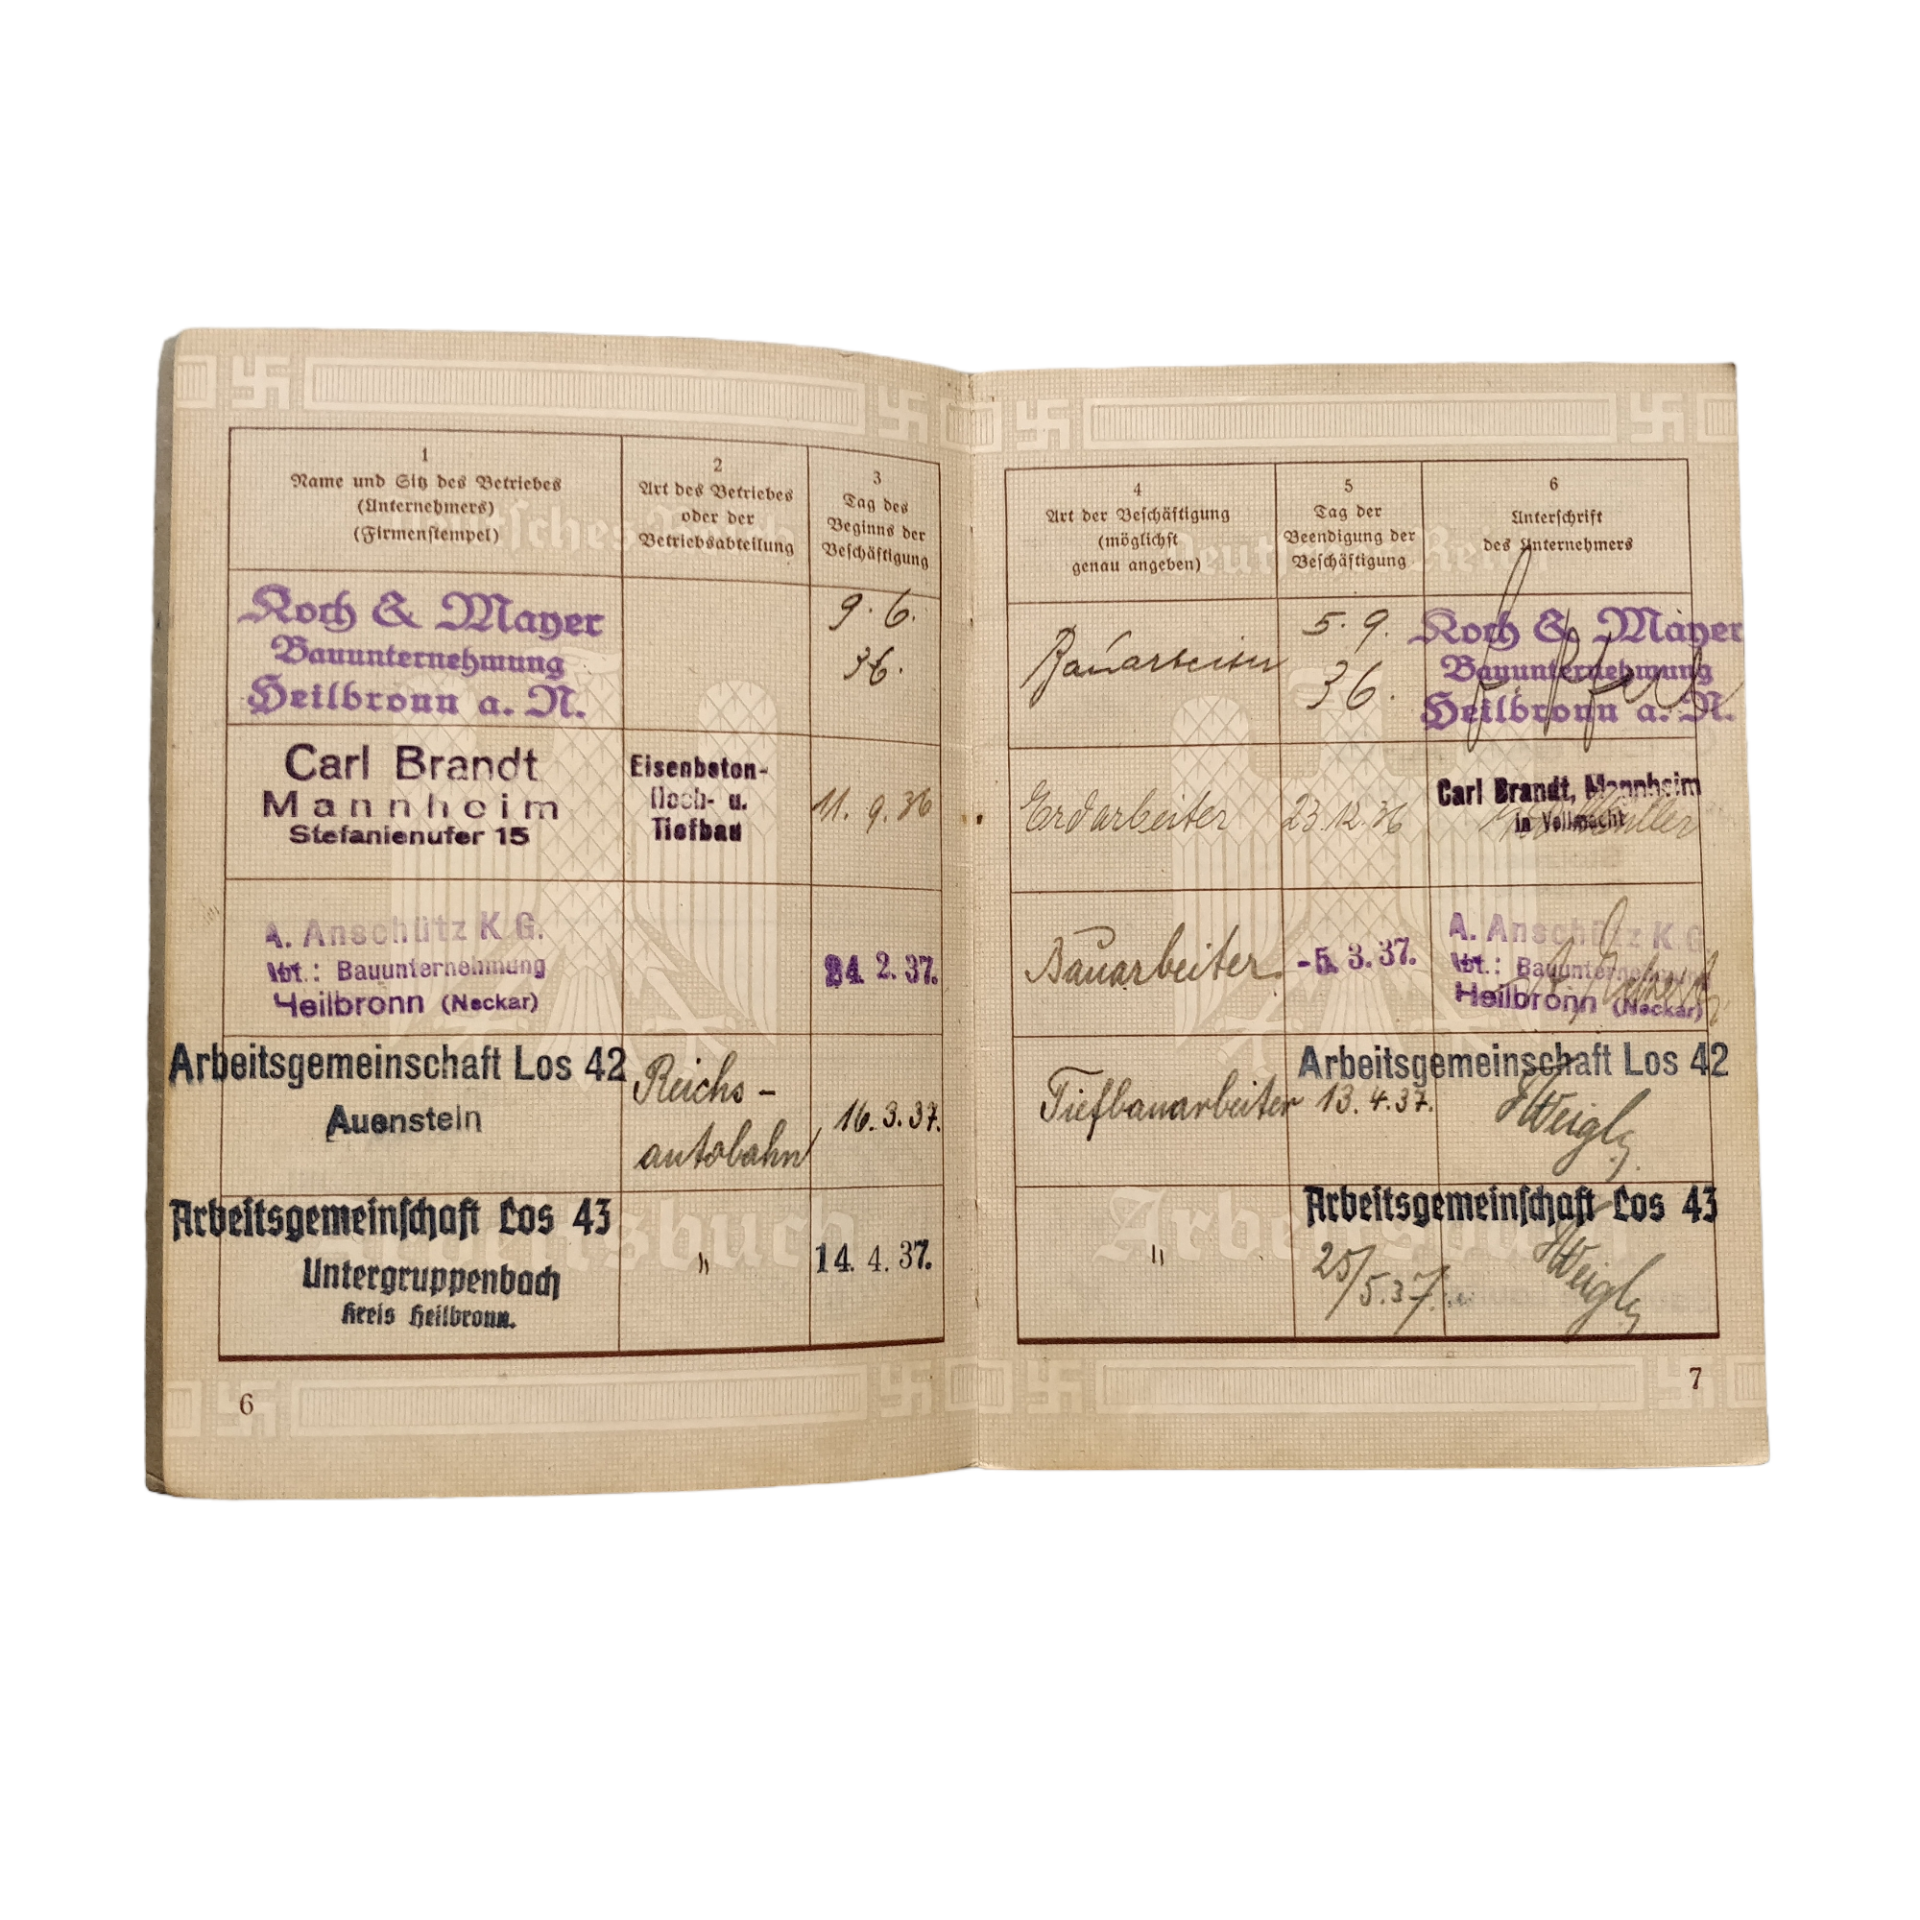 1
Name und Sitz des Betriebes
(Unternehmers)
(Firmenstempel)
2
Art des Betriebes
oder der
Betriebsabteilung
3
Tag des
Beginns der
Beschäftigung
Koch & Mayer
Bauunternehmung
Heilbronn a. N.
9. 6.
36.
Carl Brandt
Mannheim
Stefanienufer 15
Eisenbeton-
Hoch- u.
Tiefbau
11. 9. 36
A. Anschütz K G.
Abt.: Bauunternehmung
Heilbronn (Neckar)
2. 37.
Arbeitsgemeinschaft Los 42
Auenstein
Reichs-
autobahn
16. 3. 37.
Arbeitsgemeinschaft Los 43
Untergruppenbach
Kreis Heilbronn.
"
14. 4. 37.
6
Deutsches Reich
Arbeitsbuch
4
Art der Beschäftigung
(möglichst
genau angeben)
5
Tag der
Beendigung der
Beschäftigung
6
Unterschrift
des Unternehmers
Bauarbeiter
5. 9.
36.
Koch & Mayer
Bauunternehmung
Heilbronn a. N.
Erdarbeiter
23. 12. 36
Carl Brandt, Mannheim
in Vollmacht
Bauarbeiter
-5. 3. 37.
A. Anschütz K G.
Abt.: Bauunternehmung
Heilbronn (Neckar)
Tiefbauarbeiter
13. 4. 37.
Arbeitsgemeinschaft Los 42
"
25/5. 37.
Arbeitsgemeinschaft Los 43
7
Deutsches Reich
Arbeitsbuch